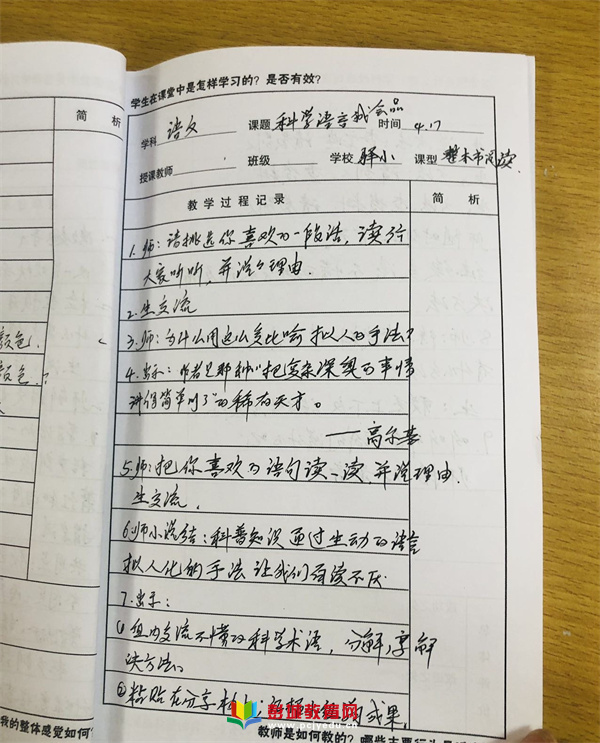 学生在课堂中是怎样学习的？是否有效？
简 析
学科 语文 课题 科学语言我会品 时间 4.17
授课教师 班级 学校 驿小 课型 整本书阅读
教 学 过 程 记 录 简 析
1.师：请挑选你喜欢的一段话，读给
大家听听，并说说理由．
2.生交流
3.师：为什么用这么多比喻拟人的手法？
4.出示：作者是那种“把复杂深奥的事情
讲得简单明了”的稀有天才。
——高尔基
5.师：把你喜欢的语句读一读 并说理由．
生交流．
6.师小结：科普知识通过生动的语言
拟人化的手法 让我们百读不厌．
7.出示：
①组内交流不懂的科学术语，分解，解
决方法。
②粘贴在分享 成果．
颜色．
颜色．
教育网
www.pcjydj.com
我的整体感觉如何
教师是如何教的？哪些主要行为是